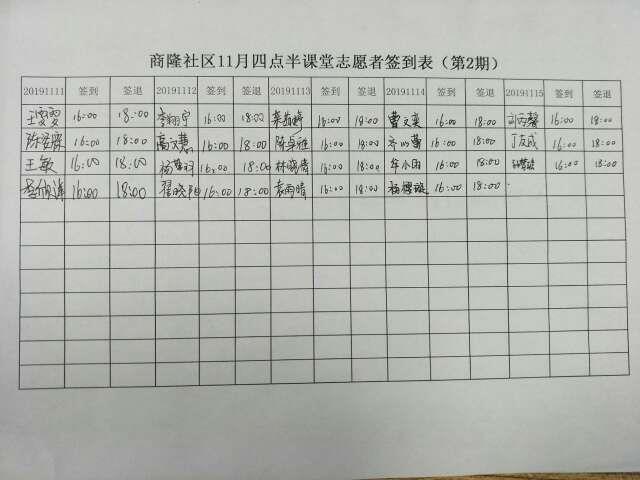 商隆社区11月四点半课堂志愿者签到表（第2期）
20191111 签到 签退 20191112 签到 签退 20191113 签到 签退 20191114 签到 签退 20191115 签到 签退
王雯雯 16:00 18:00 李翔宇 16:00 18:00 16:00 18:00 曹文奕 16:00 18:00 16:00 18:00
16:00 18:00 高文慧 16:00 18:00 陈卓雅 16:00 18:00 16:00 18:00 丁友成 16:00 18:00
王敏 16:00 18:00 16:00 18:00 林晓倩 16:00 18:00 牟小雨 16:00 18:00 16:00 18:00
16:00 18:00 翟晓阳 16:00 18:00 袁雨晴 16:00 18:00 杨樱璇 16:00 18:00